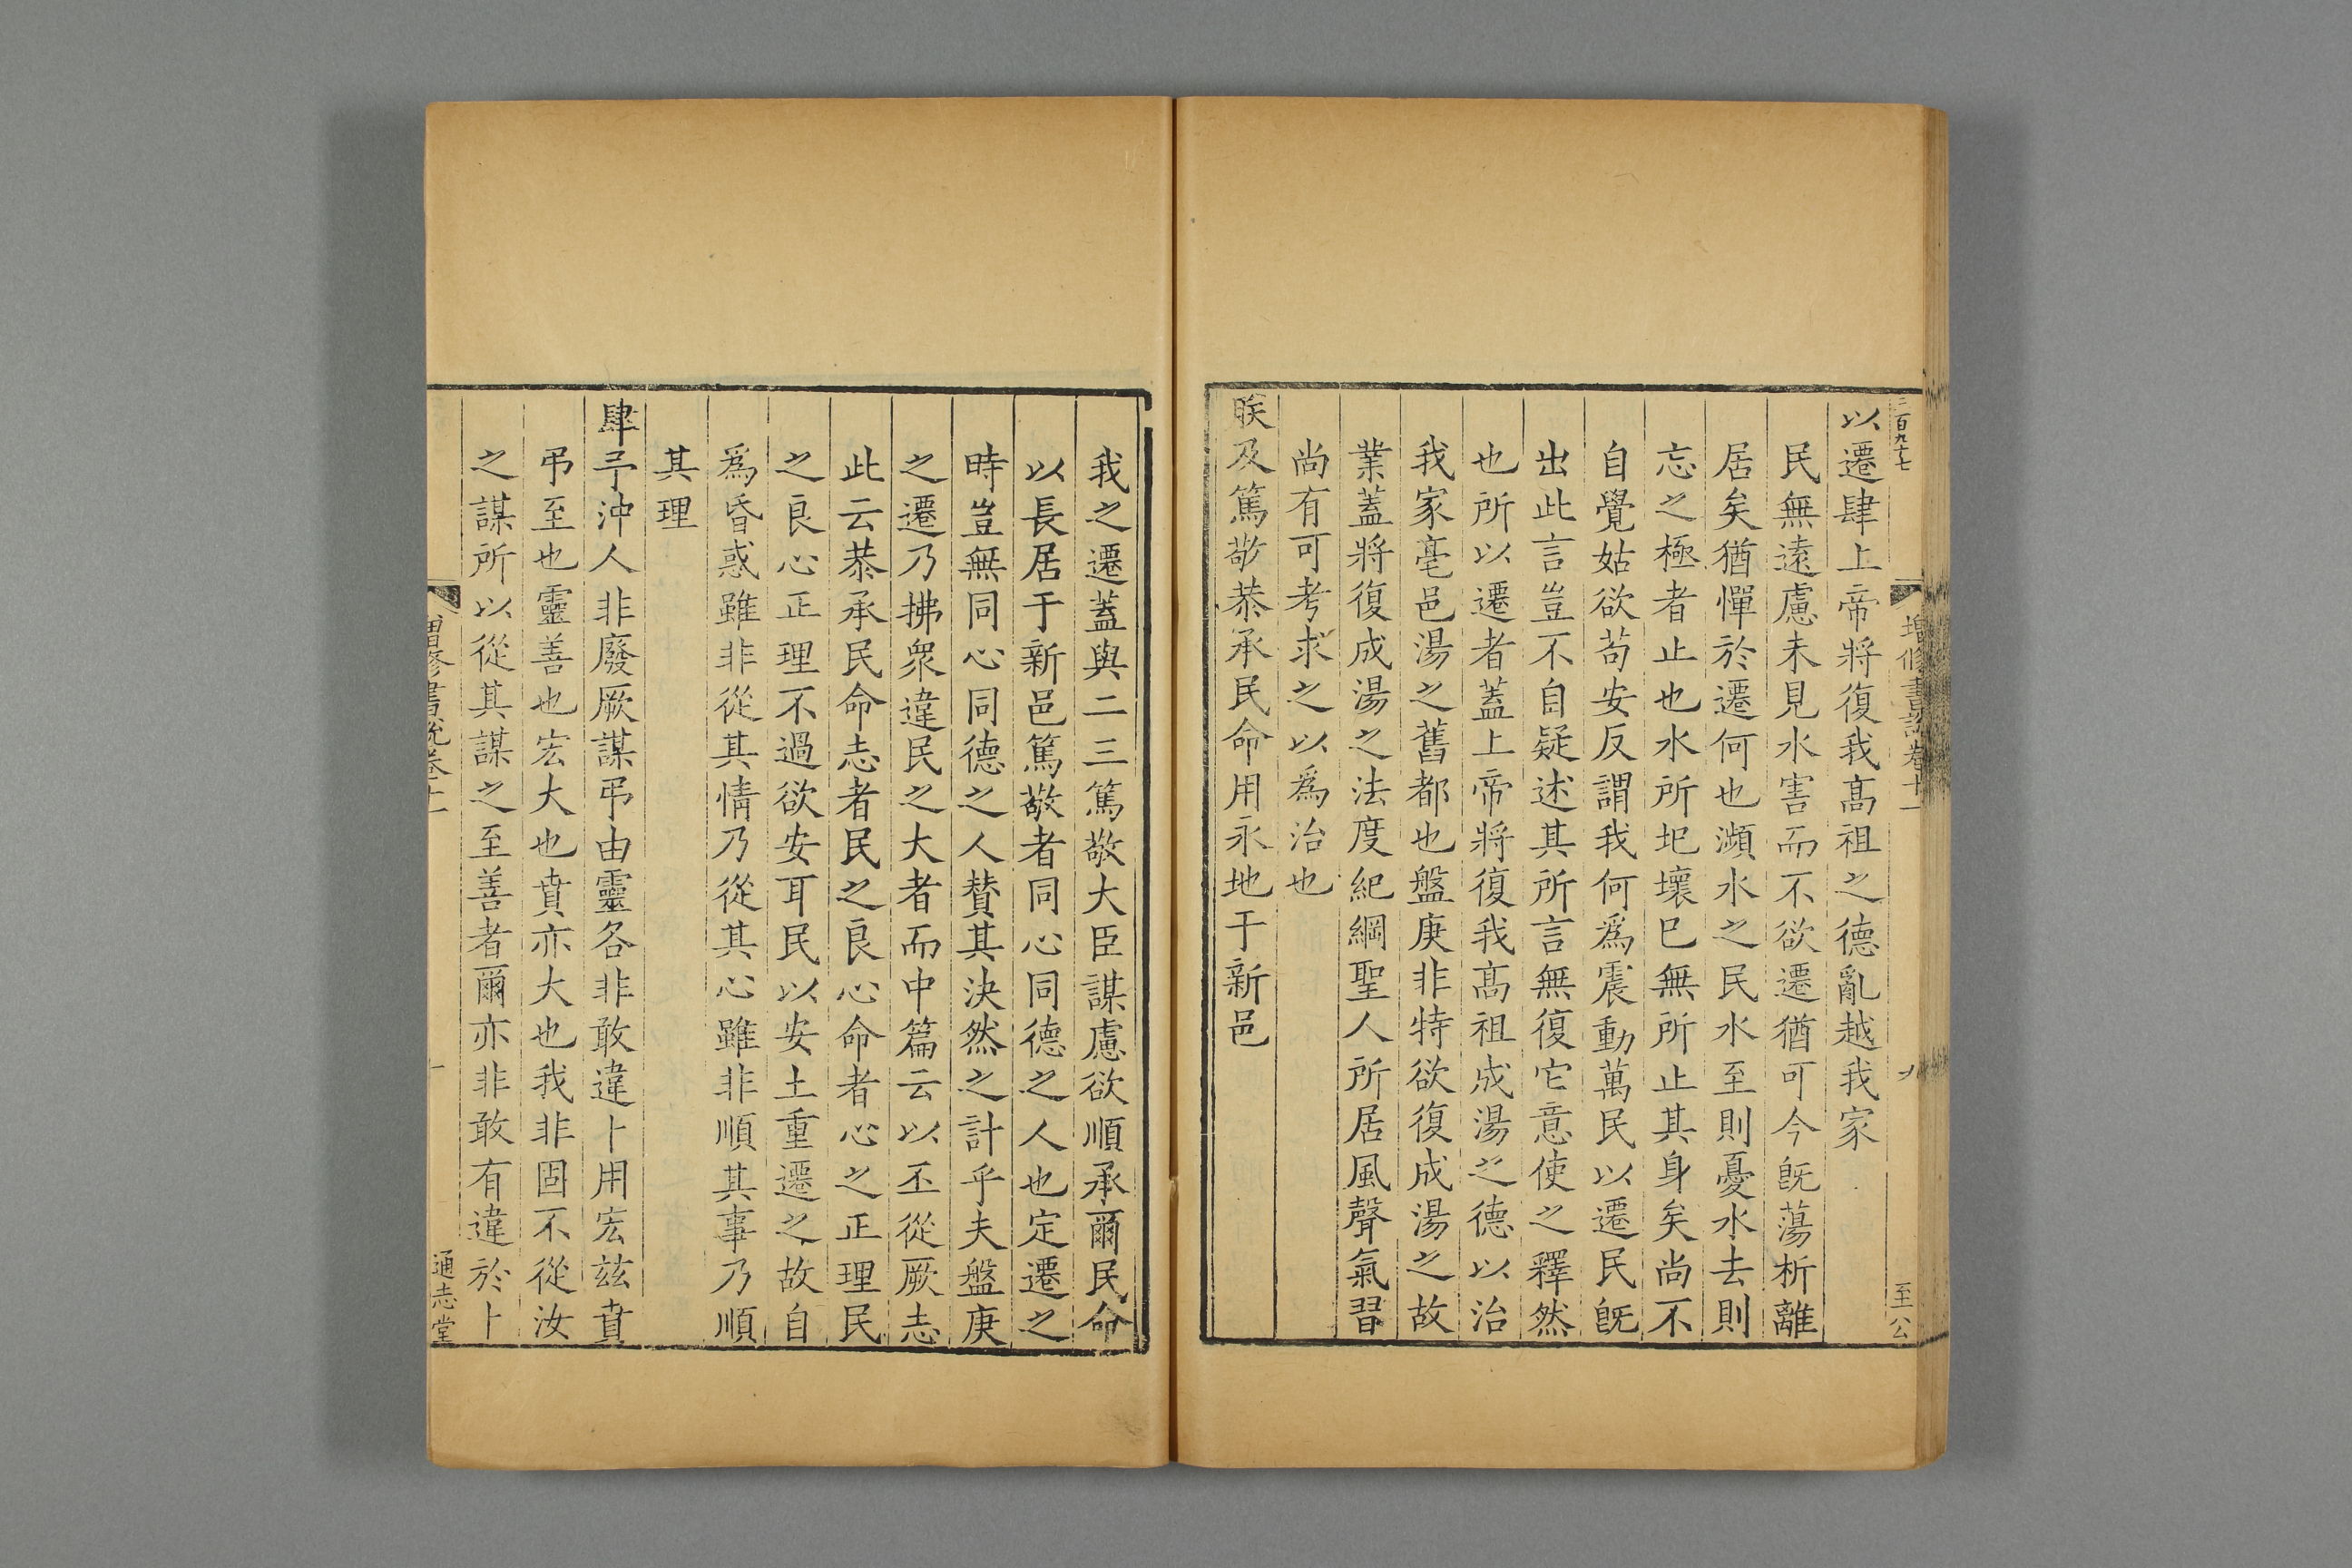 以遷肆上帝將復我髙祖之德亂越我家
民無遠慮未見水害而不欲遷猶可今旣蕩析離
居矣猶憚於遷何也瀕水之民水至則憂水去則
忘之極者止也水所圯壞巳無所止其身矣尚不
自覺姑欲苟安反謂我何爲震動萬民以遷民旣
出此言豈不自疑述其所言無復它意使之釋然
也所以遷者蓋上帝將復我髙祖成湯之德以治
我家亳邑湯之舊都也盤庚非特欲復成湯之故
業蓋將復成湯之法度紀綱聖人所居風聲氣習
尚有可考求之以爲治也
朕及篤敬恭承民命用永地于新邑
我之遷蓋與二三篤敬大臣謀慮欲順承爾民命
以長居于新邑篤敬者同心同德之人也定遷之
時豈無同心同德之人賛其決然之計乎夫盤庚
之遷乃拂衆違民之大者而中篇云以丕從厥志
此云恭承民命志者民之良心命者心之正理民
之良心正理不過欲安耳民以安土重遷之故自
爲昏惑雖非從其情乃從其心雖非順其事乃順
其理
肆予沖人非廢厥謀弔由靈各非敢違卜用宏茲賁
弔至也靈善也宏大也賁亦大也我非固不從汝
之謀所以從其謀之至善者爾亦非敢有違於卜
增修書說卷十一
通志堂